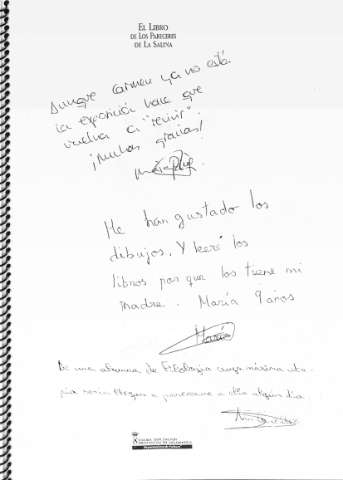 EL LIBRO
DE LOS PARECERES
DE LA SALINA
Aunque Carmen ya no está
la exposición hace que
vuelva a "revivir".
¡Muchas gracias!
Me han gustado los
dibujos. Y leeré los
libros por que los tiene mi
madre. María 9 años
María
De una alumna de Filología cuya máxima uto-
pía sería llegar a parecerse a ella algún día.